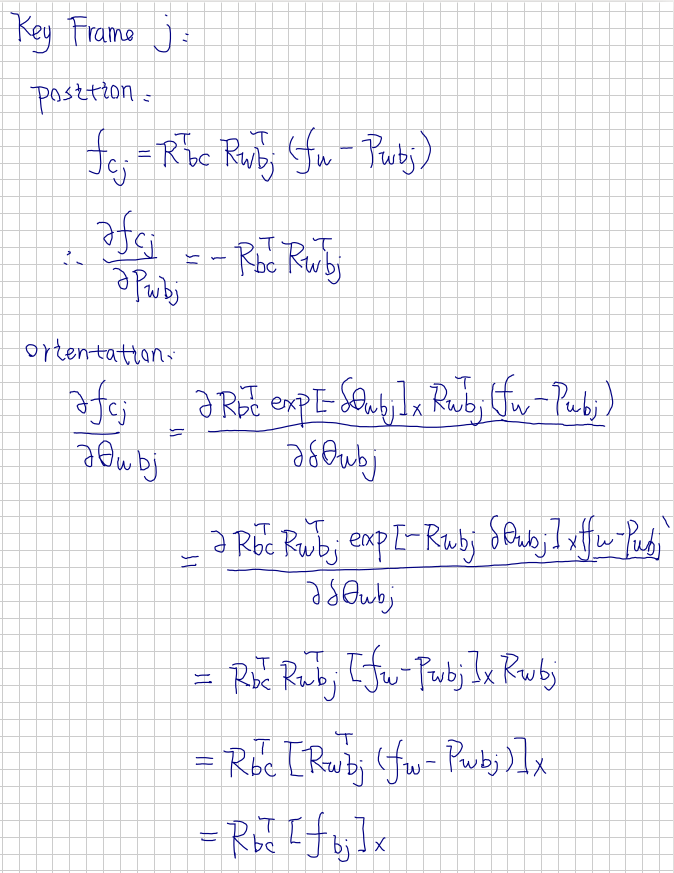 Key Frame j:
position:
f_{c_j} = R_{bc}^T R_{wb_j}^T (f_w - P_{wb_j})
∴ ∂f_{c_j} / ∂P_{wb_j} = - R_{bc}^T R_{wb_j}^T
orientation:
∂f_{c_j} / ∂θ_{wb_j} = ∂ R_{bc}^T exp[-δθ_{wb_j}]_× R_{wb_j}^T (f_w - P_{wb_j}) / ∂δθ_{wb_j}
= ∂ R_{bc}^T R_{wb_j}^T exp[-R_{wb_j} δθ_{wb_j}]_× (f_w - P_{wb_j}) / ∂δθ_{wb_j}
= R_{bc}^T R_{wb_j}^T [f_w - P_{wb_j}]_× R_{wb_j}
= R_{bc}^T [R_{wb_j}^T (f_w - P_{wb_j})]_×
= R_{bc}^T [f_{b_j}]_×